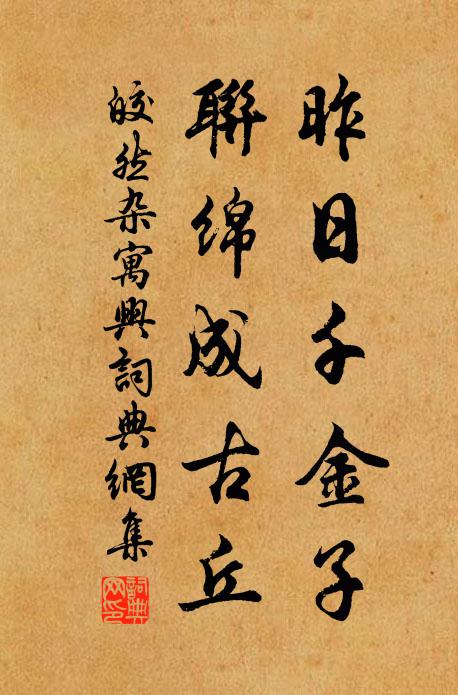 昨日千金子
聯绵成古丘
皎然杂寓興詞典網集
詞典
网印